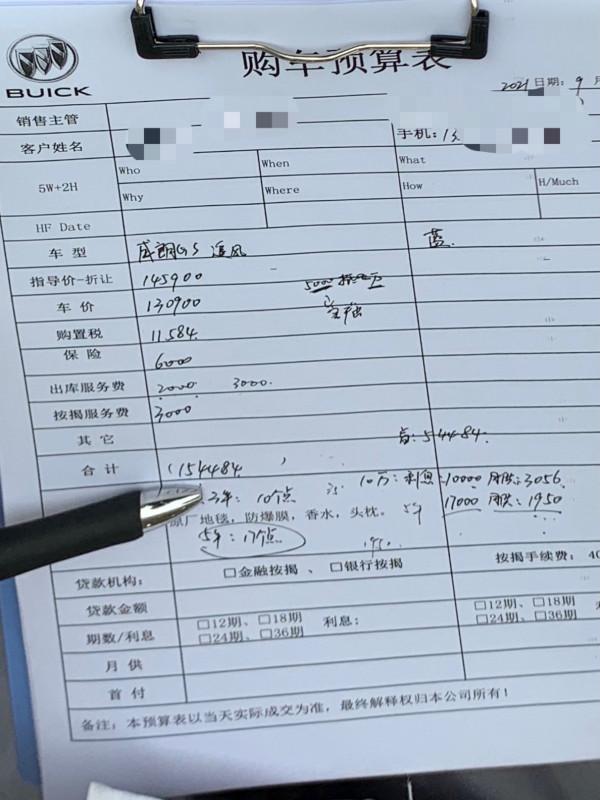 购车预算表
BUICK
2021 日期: 9 月
销售主管
客户姓名 手机: 13
5W+2H Who When What
Why Where How H/Much
HF Date
车 型 威朗GS 追风 蓝
指导价-折让 145900 5000
车 价 130900
购置税 11584
保 险 6000
出库服务费 2000 3000
按揭服务费 3000
其 它
合 计 (154484) 首: 54484
3年: 10个点 10万: 利息: 10000 月供: 3056
原厂地毯, 防爆膜, 香水, 头枕。 5年 17000 月供: 1950
5年: 17个点 1950
贷款机构: □金融按揭 、□银行按揭 按揭手续费: 40
贷款金额
期数/利息 □12期、□18期 □24期、□36期 利息: □12期、□18期 □24期、□36期
月 供
首 付
备注: 本预算表以当天实际成交为准, 最终解释权归本公司所有!